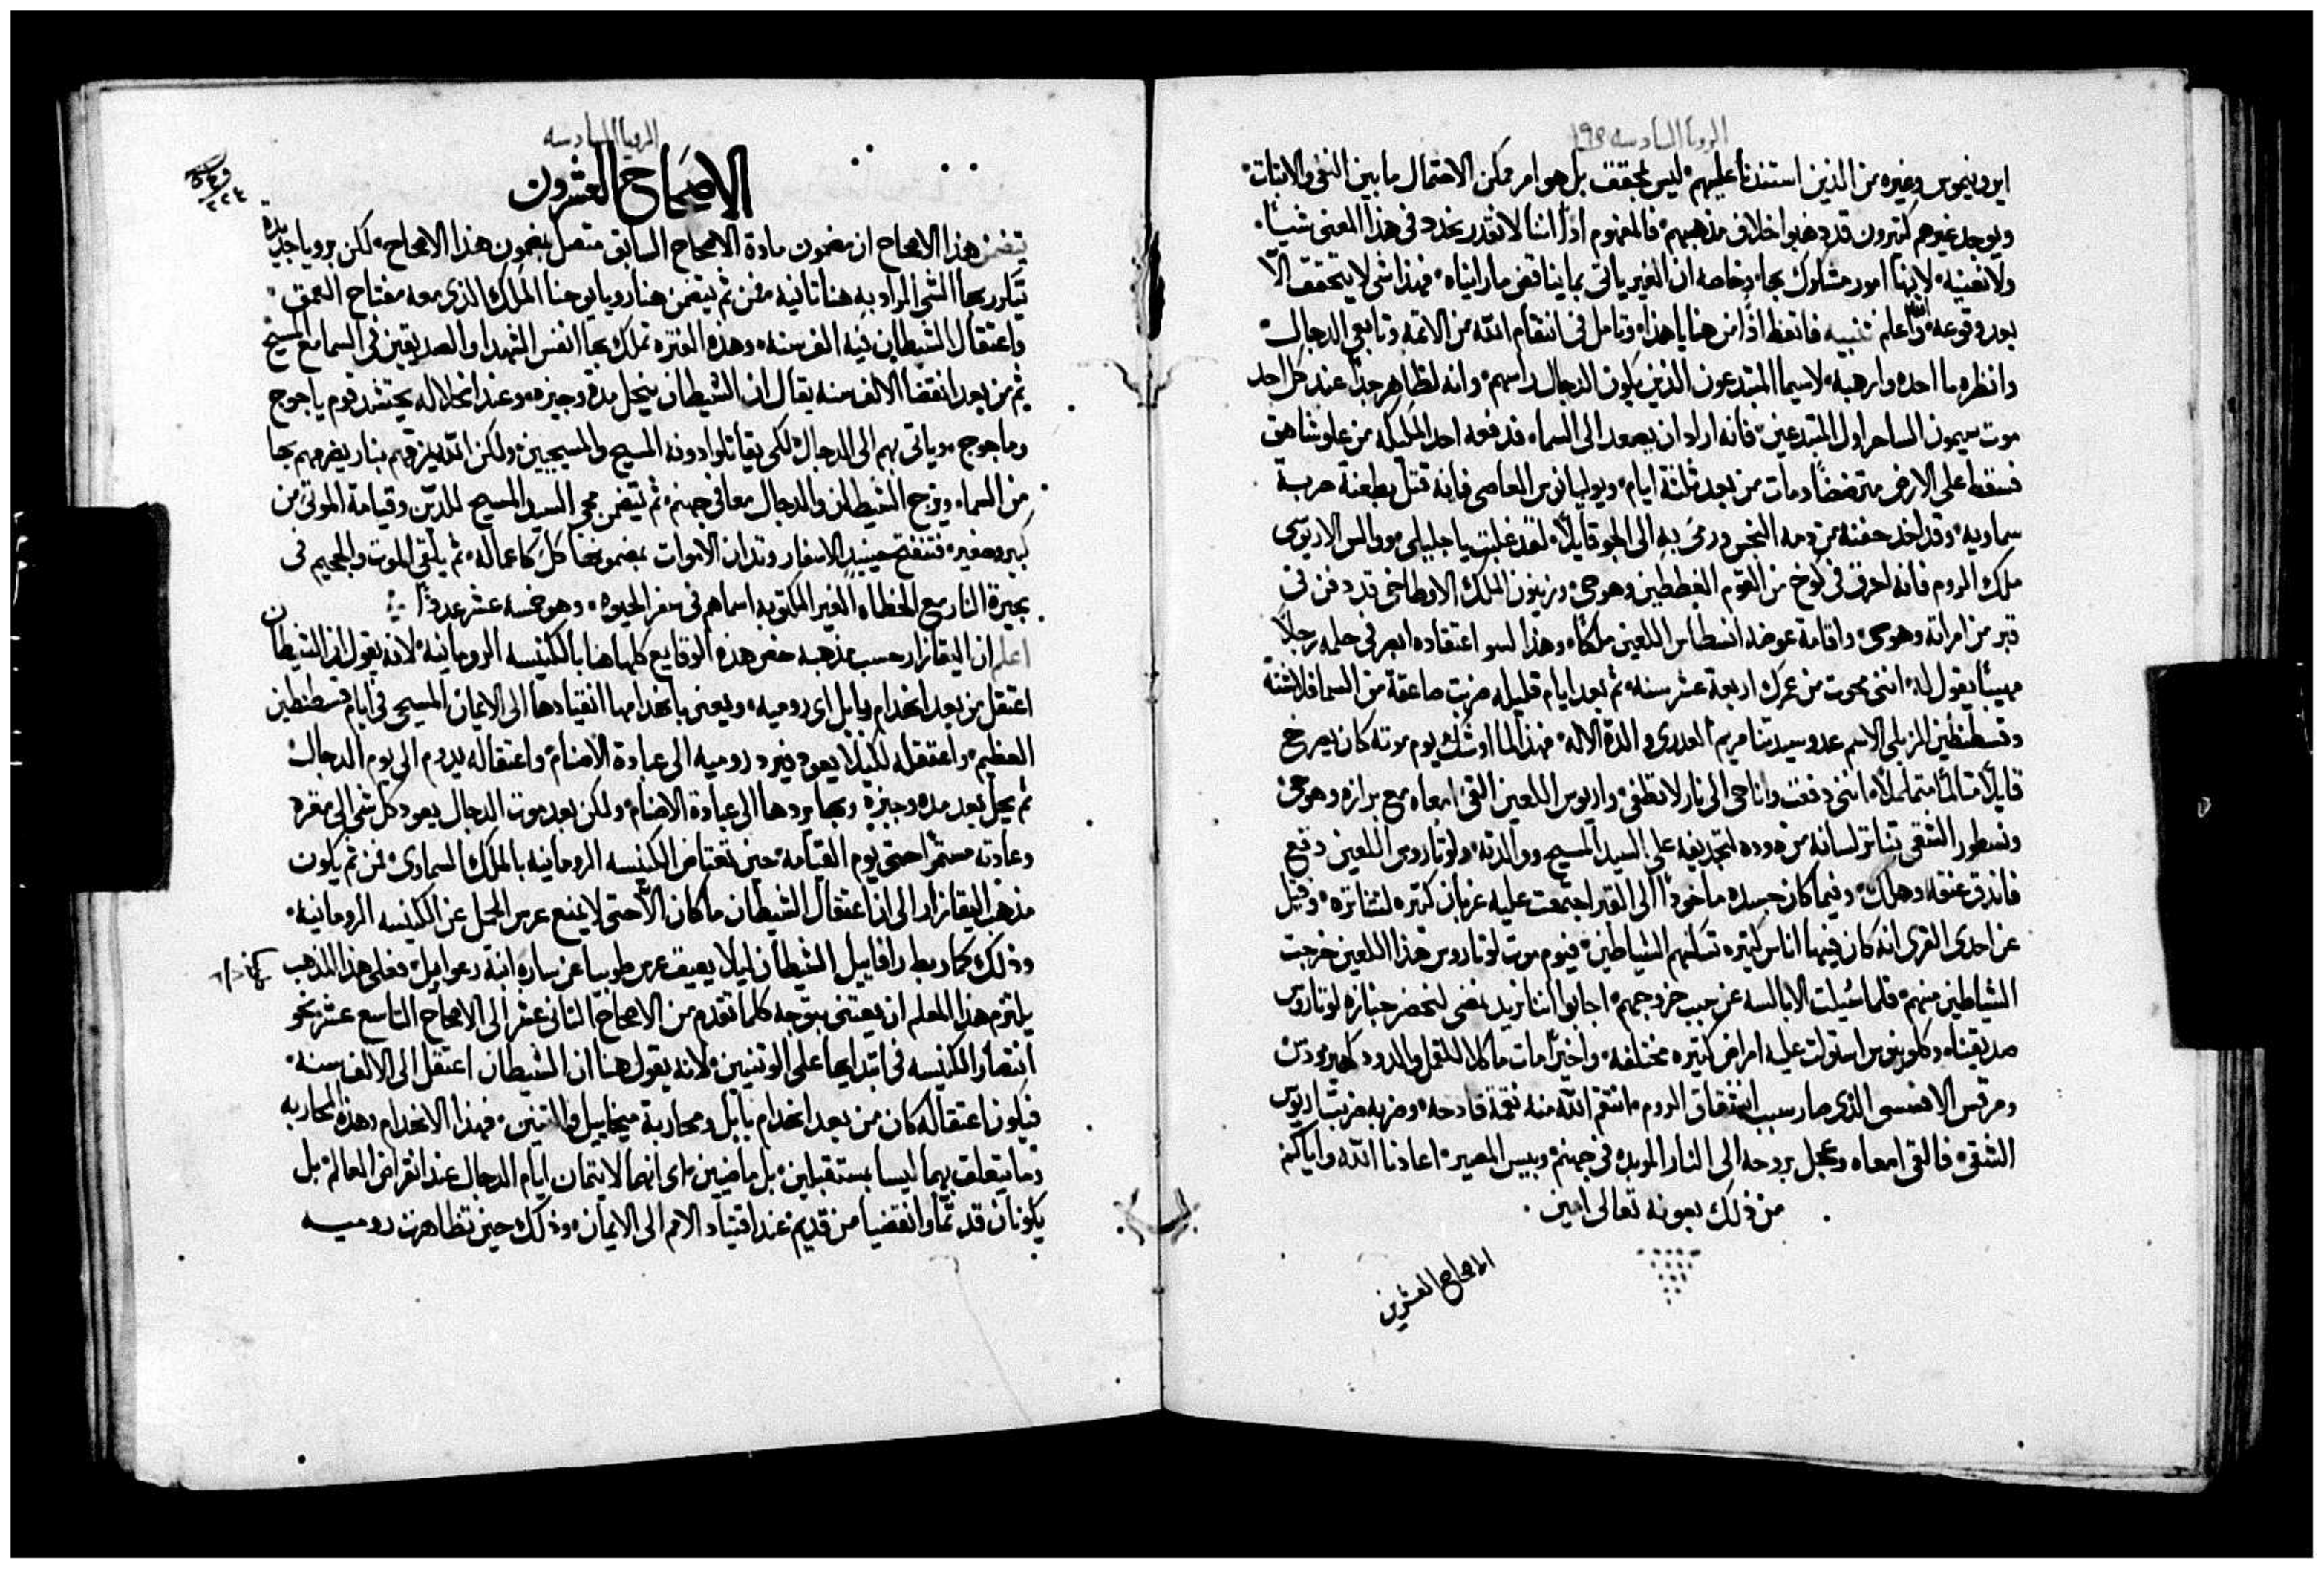 الرويا السادسه ١٩٥
ايرونيموس وغيره من الذين استندنا عليهم ليس بمحقق بل هو امر ممكن الاحتمال ما بين النفي والاثبات
ويوجد غيرهم كثيرون قد ذهبوا خلاف مذهبهم فالمفهوم اذًا اننا لا نقدر نحدد في هذا المعنى شيئًا
ولا نعينه لانها امور مشكوك بها وخاصه ان الغير ياتي بما يناقض ما رايناه فهذا شي لا يتحقق الّا
بعد وقوعه والله اعلم تنبيه فاتعظ اذًا من هنا يا هذا وتامل في انتقام الله من الائمه وتابعي الدجال
وانظره ما احده وارهبه لاسيما المبتدعون الذين يكون الدجال راسهم وانه لظاهر جدًا عند كل احد
موت سيمون الساحر اول المبتدعين فانه اراد ان يصعد الى السماء فدفعه احد المليكه من علو شاهق
فسقط على الارض مترضضًا ومات من بعد ثلثة ايام ويوليانوس العاصي فانه قتل بطعنة حربة
سماويه وقد اخذ حفنة من دمه النجس ورمى به الى الجو قايلًا لقد غلبت يا جليلي ووالس الاريوسي
ملك الروم فانه احرق في كوخ من القوم الغططين وهو حي وزينون الملك الاوطاخي قد دفن في
قبر من امراته وهو حي واقامة عوضه انسطاس اللعين ملكًا وهذا لسو اعتقاده ابصر في حلمه رجلًا
مهيبًا يقول له انني محوت من عمرك اربعة عشر سنه ثم بعد ايام قليله ضربت صاعقة من السما فلاشته
وقسطنطين الزبلي الاسم عدو سيدتنا مريم العذري والدة الاله فهذا لما اوشك يوم موته كان يصرخ
قايلًا متالمًا متململًا انني دفعت وانا حي الى نار لا تطفي واريوس اللعين القى امعاه مع برازه وهو حي
ونسطور الشقي تناثر لسانه من دوده لتجديفه على السيد المسيح ووالدته ولوتاروس اللعين دقع
فاندق عنقه وهلك وفيما كان جسده ماخوذًا الى القبر اجتمعت عليه غربان كثيره لنتانته وقيل
عن احدى القرى انه كان فيها اناس كثيره تسكنهم الشياطين فيوم موت لوتاروس هذا اللعين خرجت
الشياطين منهم فلما سُيلت الابالسه عن سبب خروجهم اجابوا اننا نريد نمضي لنحضر جنازة لوتاروس
صديقنا وكلوينوس استولت عليه امراض كثيره مختلفه واخيرًا مات ماكلا للقمل والدود كهيرودس
ومرقس الافسسي الذي صار سبب انشقاق الروم انتقم الله منه نقمة فادحه وضربه ضربة اريوس
الشقي فالقى امعاه وعجل بروحه الى النار الموبده في جهنم وبيس المصير اعاذنا الله واياكم
من ذلك بعونه تعالى امين
الاصحاح العشرين
الرويا السادسه
الاصحاح العشرون
يتضمن هذا الاصحاح ان مضمون مادة الاصحاح السابق متصل بمضمون هذا الاصحاح لكن برويا جديده
تكرر بها الشي المراد به هنا ثانية فمن ثم يتضمن هنا رويا يوحنا الملك الذي معه مفتاح العمق
واعتقال الشيطان فيه الف سنه وهذه الفتره تملك بها انفس الشهدا والصديقين في السما مع المسيح
ثم من بعد انقضا الالف سنه يقال ان الشيطان ينحل مدة وجيزه وعند انحلاله يحتشد قوم ياجوج
وماجوج وياتي بهم الى الدجال لكي يقاتلوا دونه المسيح والمسيحيين ولكن الله يمزقهم بنار يضرمهم بها
من السماء ويزج الشيطان والدجال معا في جهنم ثم يتضمن مجي السيد المسيح للدين وقيامة الموتى من
كبير وصغير فتنفتح حينيذ الاسفار وتدان الاموات بمضمونها كل كاعماله ثم يلقى الموت والجحيم في
بحيرة النار مع الخطاه الغير المكتوبه اسماهم في سفر الحيوه وهو خمسة عشر عددًا
اعلم ان اليقازار حسب مذهبه خص هذه الوقايع كلها هنا بالكنيسه الرومانيه لانه يقول ان الشيطان
اعتقل من بعد انهدام بابل اي روميه ويعني بانهدامها انقيادها الى الايمان المسيحي في ايام قسطنطين
العظيم واعتقله لكيلا يعود فيرد روميه الى عبادة الاصنام واعتقاله يدوم الى يوم الدجال
ثم يحل بعد مده وجيزة وبها يردها الى عبادة الاصنام ولكن بعد موت الدجال يعود كل شي الى مقره
وعادته مستمرًا حتى يوم القيامه حين تعتاض الكنيسه الرومانيه بالملك السماوي فمن ثم يكون
مذهب اليقازار الى ان اعتقال الشيطان ما كان الّا حتى لا يمنع عرس الحمل عن الكنيسه الرومانيه
وذلك كما ربط رافاييل الشيطان ليلا يعيق عرس طوبيا عن ساره ابنة رعوايل فعلى هذا المذهب
يلتزم هذا المعلم ان يعتني بتوجه كلما تقدم من الاصحاح الثاني عشر الى الاصحاح التاسع عشر نحو
انتصار الكنيسه في ابتدايها على الوثنيين لانه يقول هنا ان الشيطان اعتقل الى الالف سنه
فيكون اعتقاله كان من بعد انهدام بابل ومحاربة ميخاييل والتنين فهذا الانهدام وهذه المحاربه
وما يتعلق بهما ليسا بمستقبلين بل ماضيين اي انهما لا يتمان ايام الدجال عند انقراض العالم بل
يكونان قد تمّا وانقضيا من قديم عند اقتياد الامم الى الايمان وذلك حين تظاهرت روميه